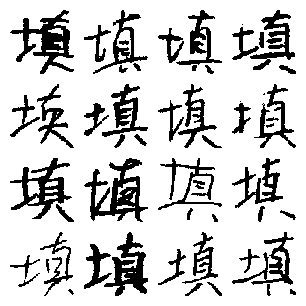 填填填填
填填填填
填填填填
填填填填